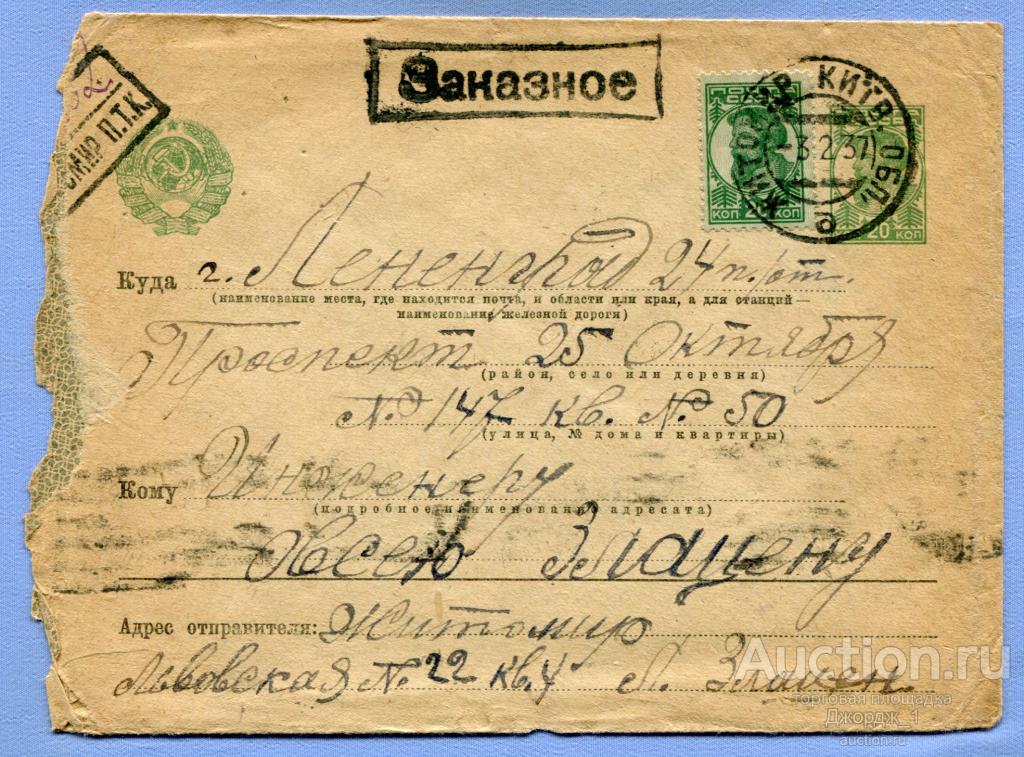 Заказное
ОМИР П.Т.К.
ЖИТОМИР КИЇВ. ОБЛ.
-3.2.37
а
КОП 20 КОП
20 КОП
Куда г. Лененград 24 п./от.
(наименование места, где находится почта, и области или края, а для станций —
наименование железной дороги)
Проспект 25 Октября
(район, село или деревня)
№ 147 кв. № 50
(улица, № дома и квартиры)
Кому Инженеру
(подробное наименование адресата)
Овсею Злацену
Адрес отправителя: Житомир
Львовская № 22 кв. 4 Л. Злацен.
Auction.ru
торговая площадка
Джордж_1
auction.ru